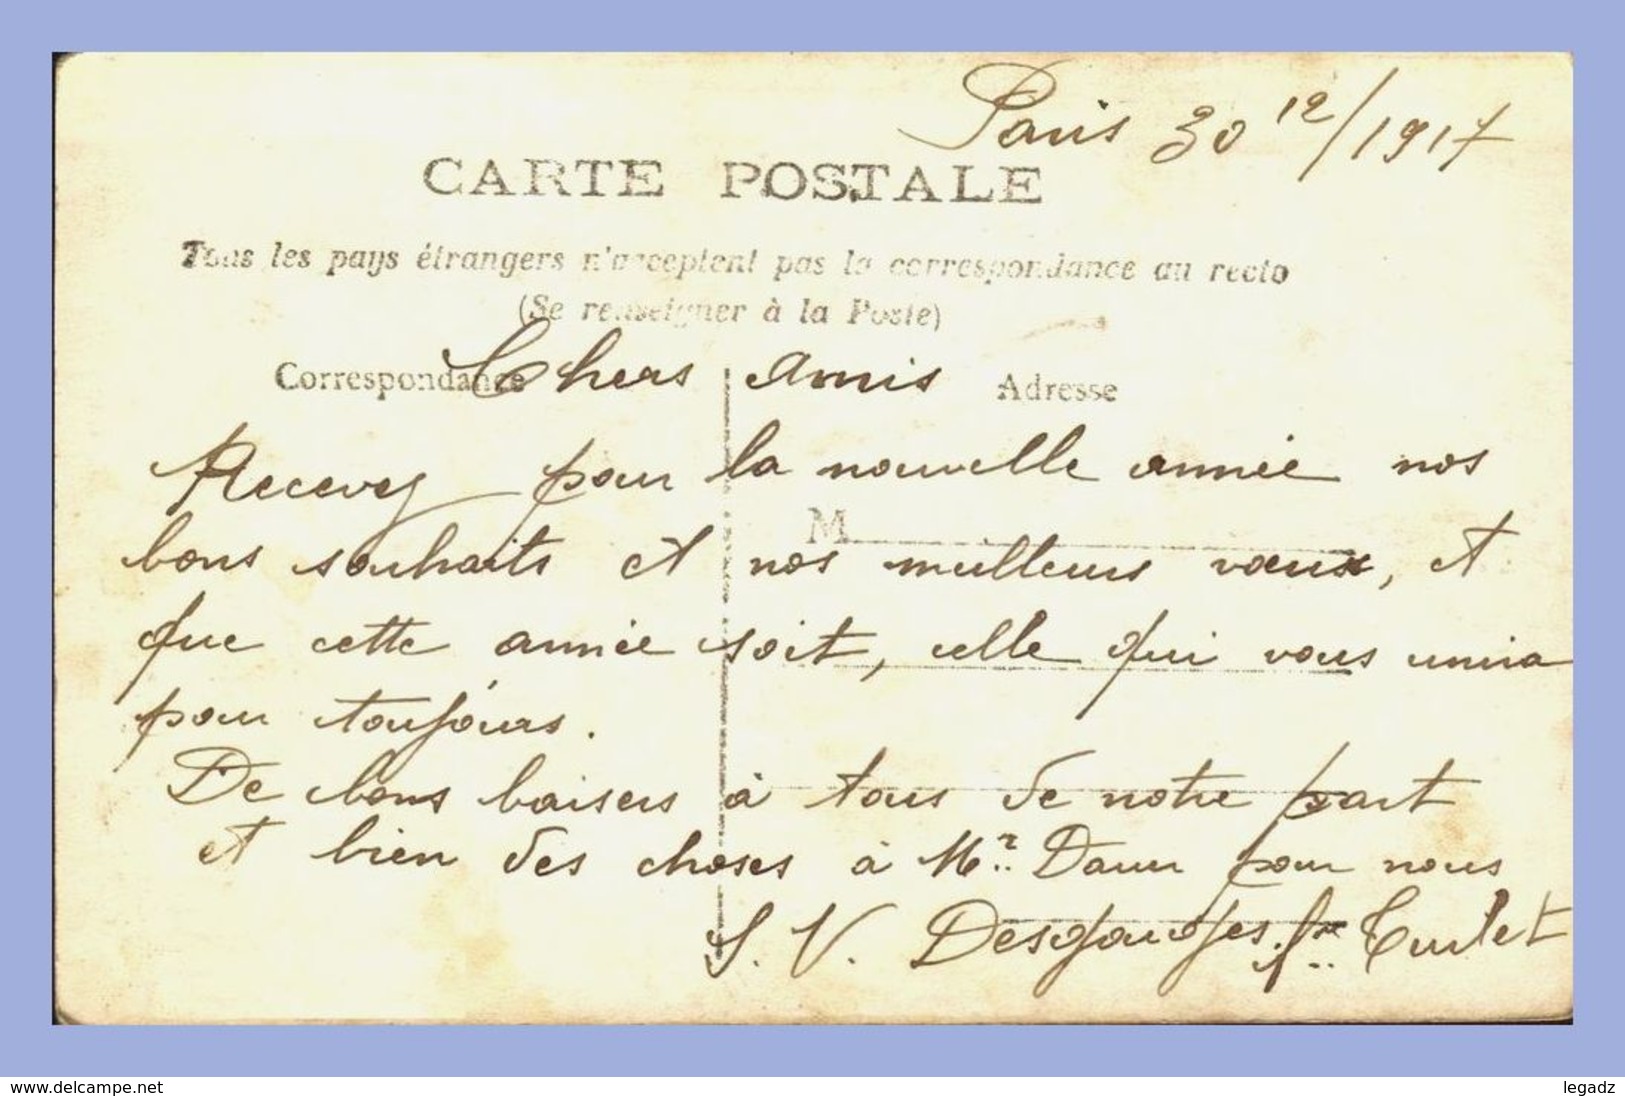 Paris 30 12/1917
CARTE POSTALE
Tous les pays étrangers n'acceptent pas la correspondance au recto
(Se renseigner à la Poste)
Correspondance
Adresse
Chers amis
Recevez pour la nouvelle année nos
M
bons souhaits et nos meilleurs vœux, et
que cette année soit, celle qui vous unira
pour toujours.
De bons baisers à tous de notre part
et bien des choses à Mr. pour nous
S. V.
www.delcampe.net
legadz